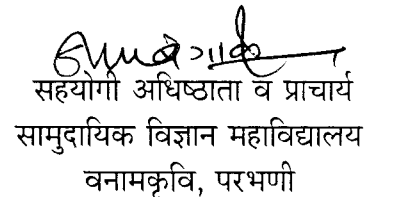 सहयोगी अधिष्ठाता व प्राचार्य
सामुदायिक विज्ञान महाविद्यालय
वनामकृवि, परभणी